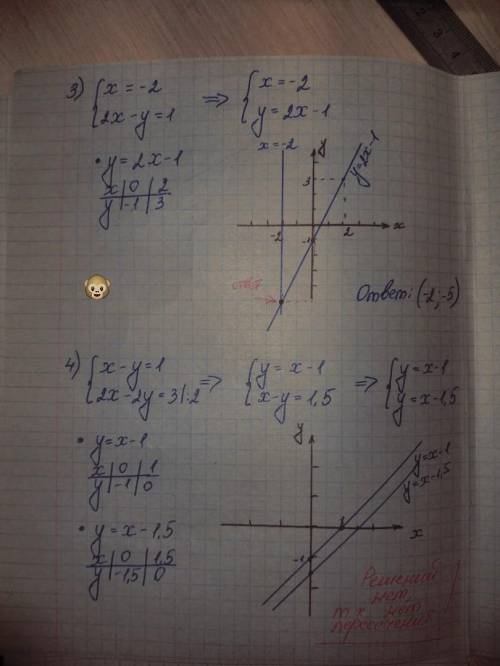 3) { x = -2 => { x = -2
2x - y = 1 y = 2x - 1
• y = 2x - 1
x | 0 | 2
y | -1 | 3
x = -2
y
y = 2x - 1
3
-2
2
x
-1
ответ
Ответ: (-2; -5)
4) { x - y = 1 => { y = x - 1 => { y = x - 1
2x - 2y = 3 |:2 x - y = 1,5 y = x - 1,5
• y = x - 1
x | 0 | 1
y | -1 | 0
• y = x - 1,5
x | 0 | 1,5
y | -1,5 | 0
y
y = x - 1
y = x - 1,5
1
x
-1
Решений
нет,
т.к. нет
пересечения